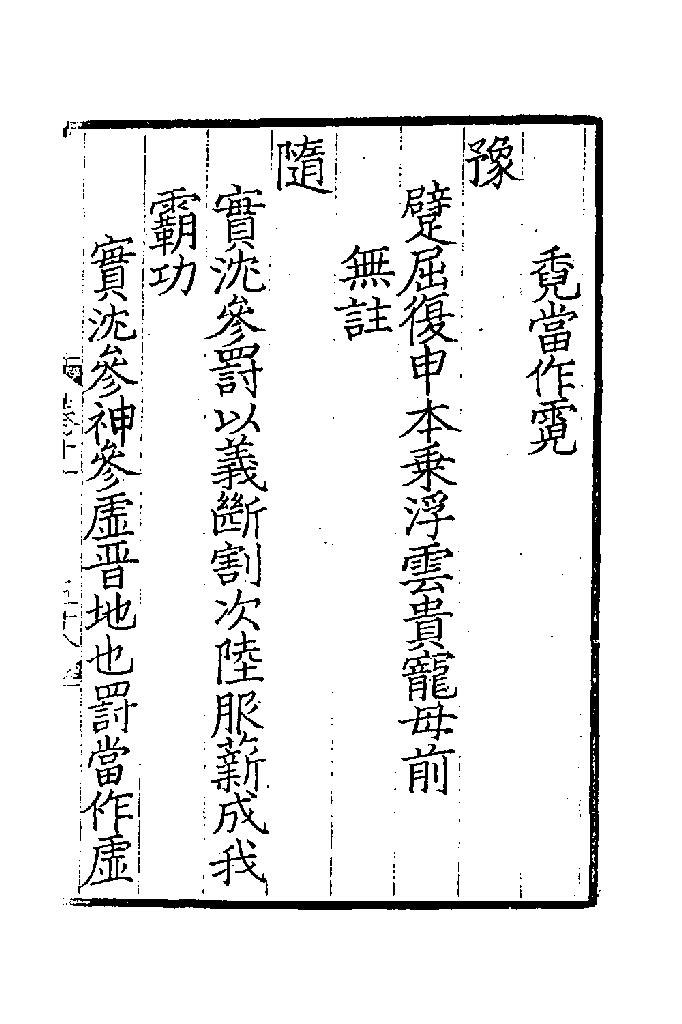 霓當作霓
豫
躄屈復申本乗浮雲貴寵毋前
無註
隨
實沈參罰以義斷割次陸服薪成我
霸功
實沈參神參虛晉地也罰當作虛